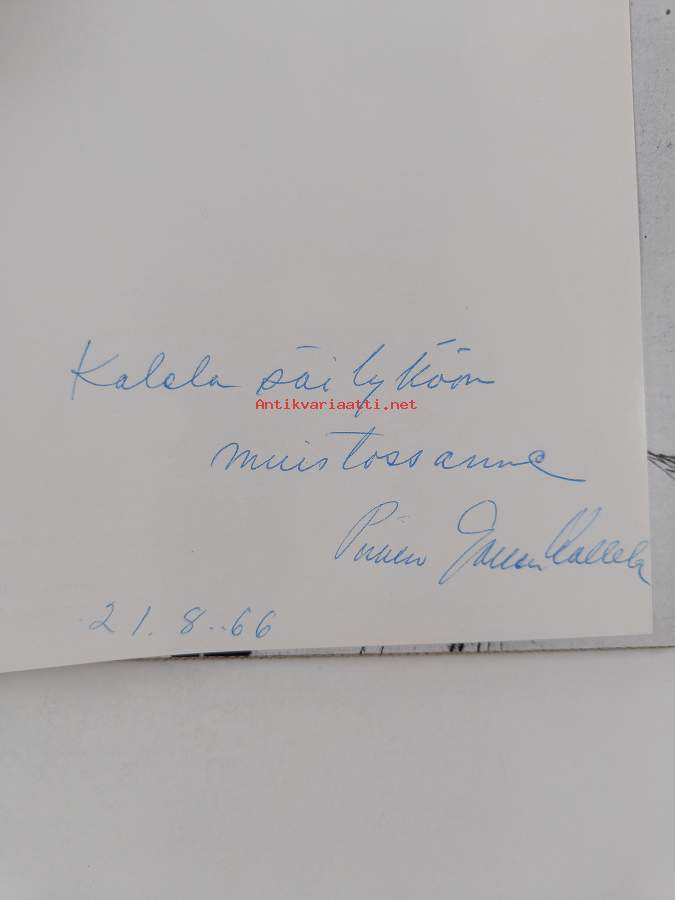 Kalela säilyköön
Antikvariaatti.net
muistossanne
Pirkko Gallen-Kallela
21.8.66